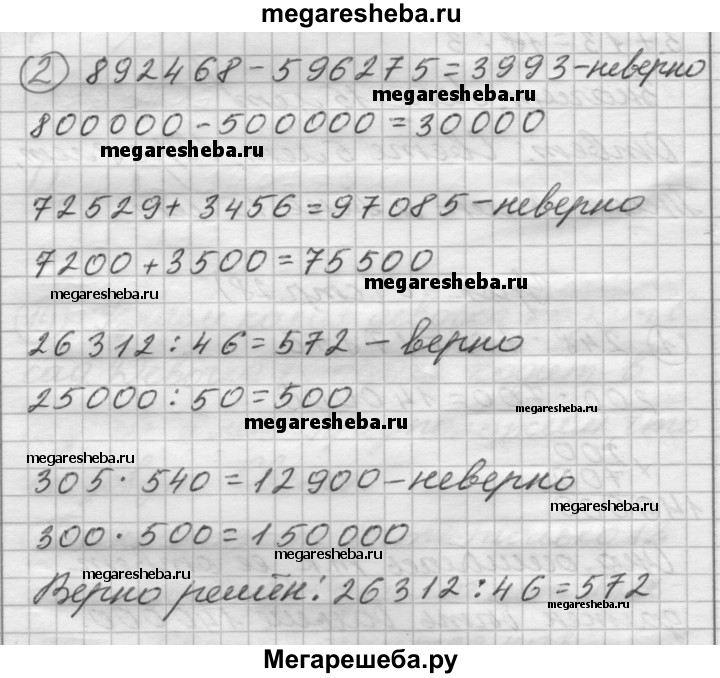 megaresheba.ru
2 892468-596275=3993-неверно
megaresheba.ru
800000-500000=30000
megaresheba.ru
72529+3456=97085-неверно
7200+3500=75500
megaresheba.ru
megaresheba.ru
26312:46=572-верно
25000:50=500
megaresheba.ru
megaresheba.ru
megaresheba.ru
305·540=12900-неверно
megaresheba.ru
300·500=150000
megaresheba.ru
megaresheba.ru
Верно решён: 26312:46=572
megaresheba.ru
Мегарешеба.ру